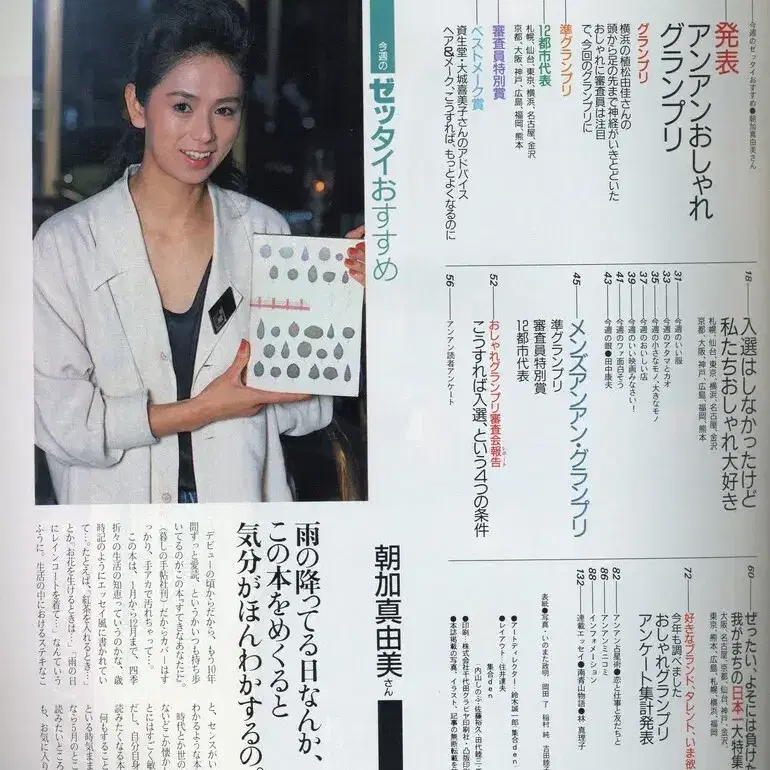 今週のゼッタイおすすめ●朝加真由美さん
発表
アンアンおしゃれ
グランプリ
グランプリ
横浜の植松由佳さんの
頭から足の先まで神経がいきとどいた
おしゃれに審査員は注目
で、今回のグランプリに
準グランプリ
12都市代表
札幌、仙台、東京、横浜、名古屋、金沢
京都、大阪、神戸、広島、福岡、熊本
審査員特別賞
ベストメーク賞
資生堂・大城喜美子さんのアドバイス
ヘア&メーク、こうすれば、もっとよくなるのに
今週の
ゼッタイおすすめ
18
入選はしなかったけど
私たちおしゃれ大好き
札幌、仙台、東京、横浜、名古屋、金沢
京都、大阪、神戸、広島、福岡、熊本
31 今週のいい服
33 今週のアタマとカオ
35 今週の小さなモノ、大きなモノ
37 今週のおいしい店
39 今週のいい映画みなさい!
41 今週のワァ面白そう
43 今週の眼●田中康夫
45
メンズアンアン・グランプリ
準グランプリ
審査員特別賞
12都市代表
52
おしゃれグランプリ審査会報告
こうすれば入選、という4つの条件
56 アンアン読者アンケート
60
ぜったい、よそには負けた
我がまちの日本一大特集
大阪、名古屋、京都、金沢、横浜、神戸
東京、熊本、広島、札幌、福岡、仙台
72
好きなブランド、タレント、いま欲
今年も調べました
おしゃれグランプリ
アンケート集計発表
82 アンアン占星術●恋と仕事と友だちと
86 アンアンミニコミ
88 インフォメーション
132 連載エッセイ●南青山物語●林 真理子
表紙●写真・いのまた政明 岡田 了 稲村 純 吉田睦子
●アートディレクター・鈴木誠一郎・集合den.
●レイアウト・住井達夫
集合den
・内山しのぶ・佐藤裕久・田代睦三
●印刷・株式会社千代田グラビヤ印刷社・凸版印
●本誌掲載の写真、イラスト、記事の無断転載を
朝加真由美さん
雨の降ってる日なんか、
この本をめくると
気分がほんわかするの。
デビューの頃からだから、もう10年
間ずっと愛読、というかいつも持ち歩
いてるのがこの本『すてきなあなたに』。
(暮しの手帖社刊)だからカバーはす
っかり、手アカで汚れちゃって…。
この本は、1月から12月まで、四季
折々の生活の知恵っていうのかな、歳
時記のようにエッセイ風に書かれてい
て…。たとえば、「紅茶を入れるとき…」
とか。お花を生けるときは…「雨の日
にレインコートを着て…」なんていう
ふうに。生活の中におけるステキなこ
と、センスがい
わかるような本
ないどこか懐かし
時代とか世の
とにはすごく敏
だし、自分自身
読みたくなる本
何もすること
という時気まま
なら5月のところ
読みたいところ
も、お気に入り